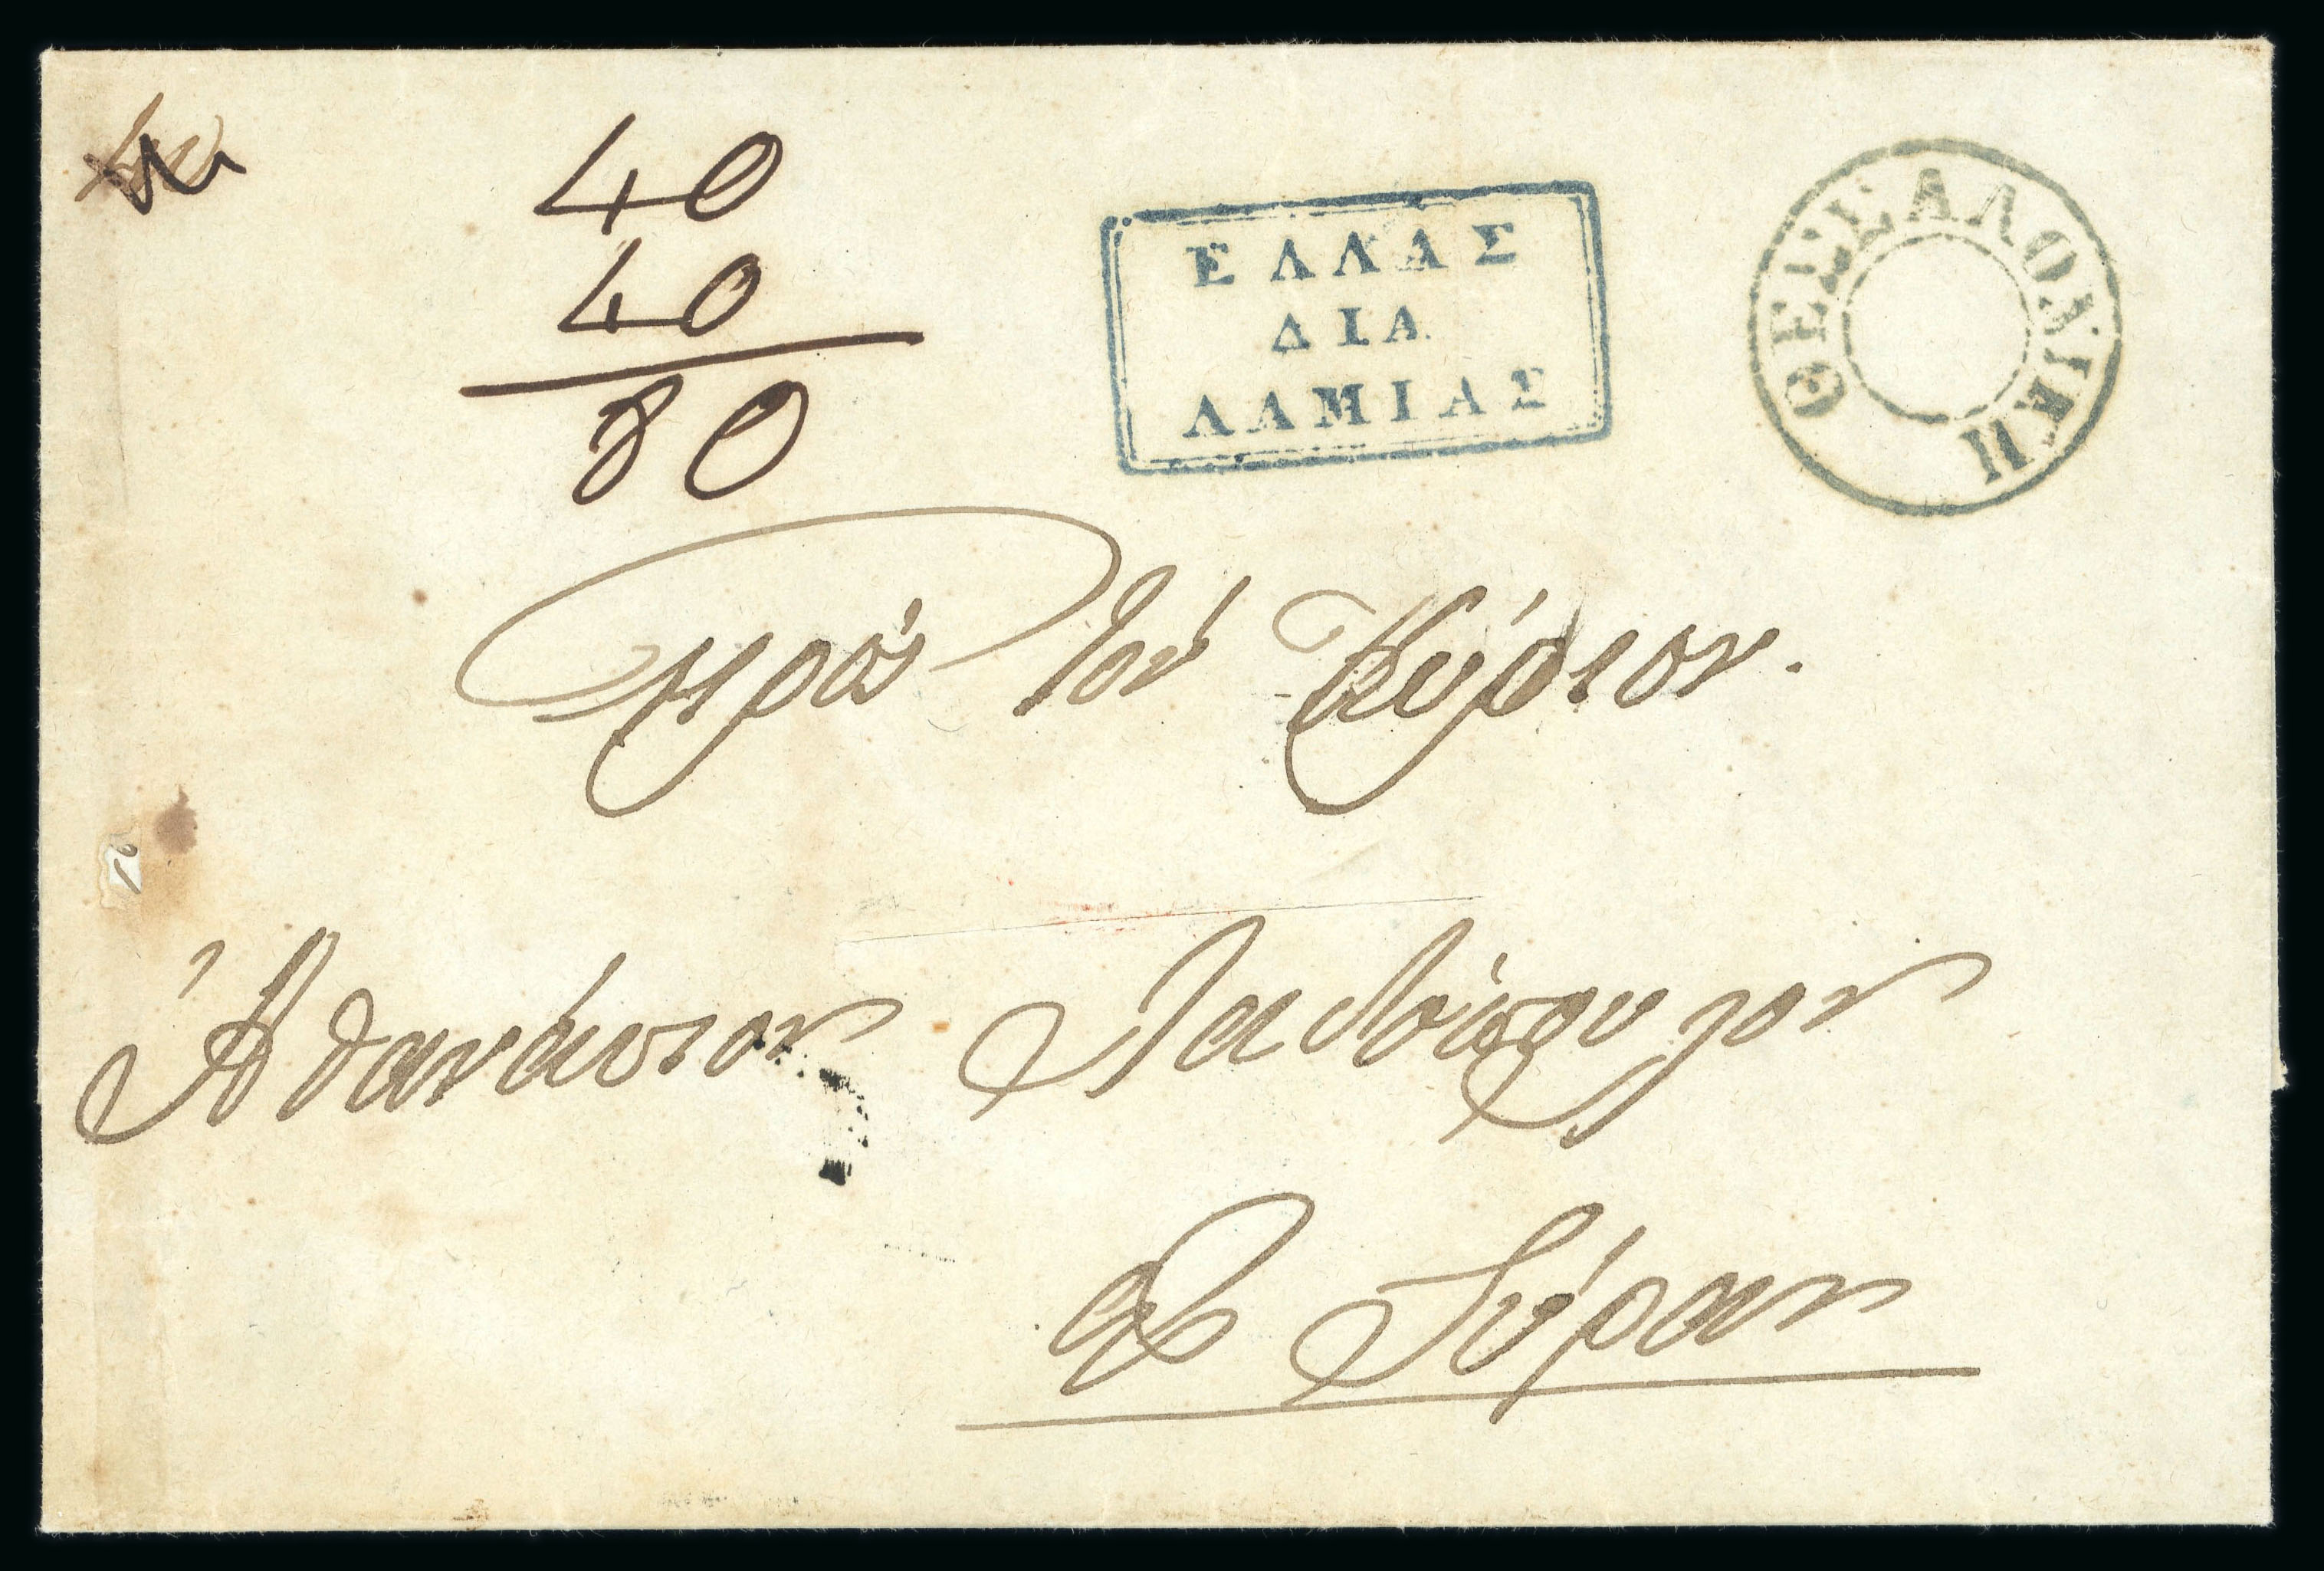 40
40
80
ΕΛΛΑΣ
ΔΙΑ
ΛΑΜΙΑΣ
ΘΕΣΣΑΛΟΝΙΚΗ
Πρὸς τὸν Κύριον.
Ἀθανάσιον
Σύραν